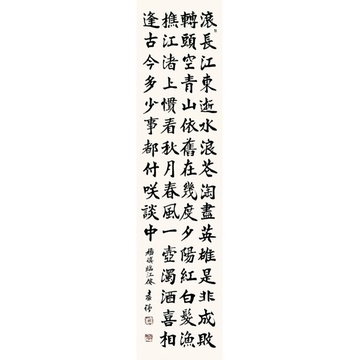 滾長江東逝水浪花淘盡英雄是非成敗
轉頭空青山依舊在幾度夕陽紅白髮漁
樵江渚上慣看秋月春風一壺濁酒喜相
逢古今多少事都付咲談中
楊慎臨江仙